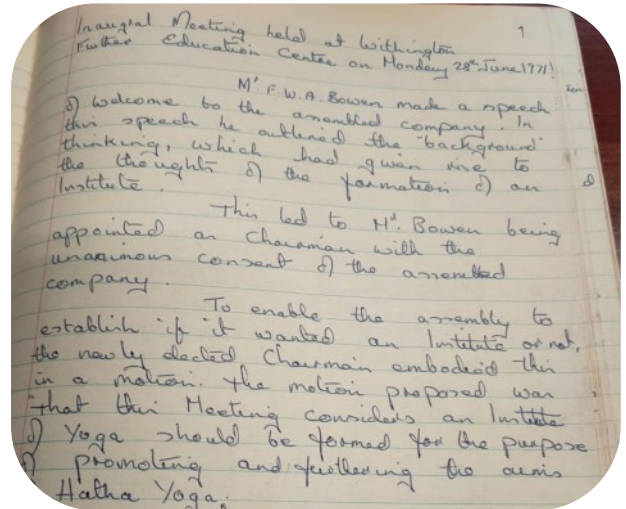 1
Inaugral Meeting held at Withington
Further Education Centre on Monday 28th June 1971!
Mr F.W.A. Bowen made a speech
of welcome to the assembled company. In
this speech he outlined the "background"
thinking, which had given rise to
the thoughts of the formation of an
Institute.
This led to Mr. Bowen being
appointed as Chairman with the
unanimous consent of the assembled
company.
To enable the assembly to
establish if it wanted an Institute or not,
the newly elected Chairman embodied this
in a motion. The motion proposed was
"that this Meeting considers an Institute
of Yoga should be formed for the purpose
of promoting and furthering the aims
Hatha Yoga.